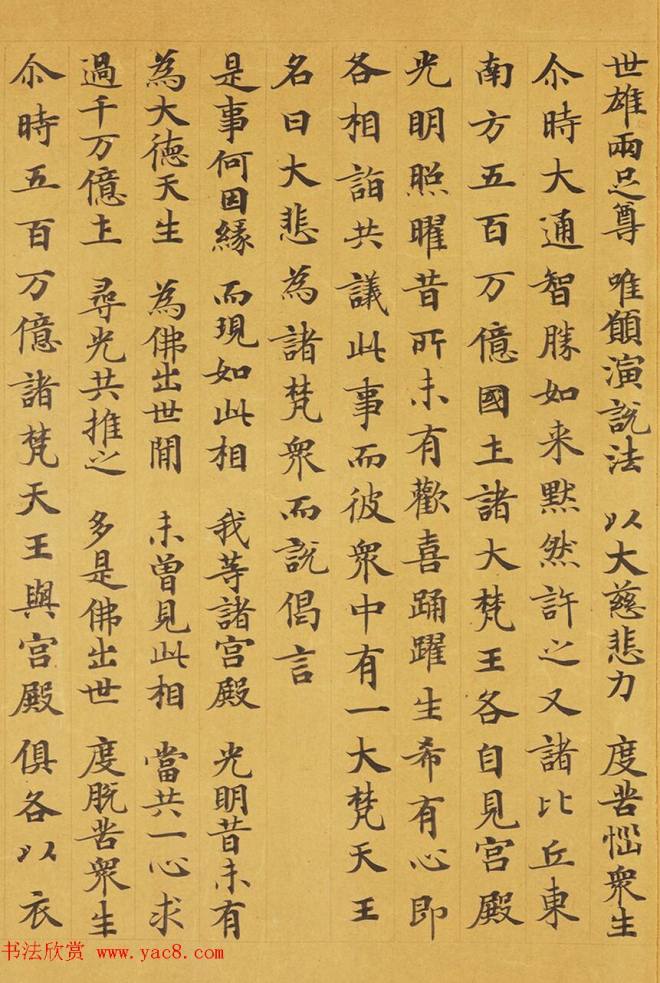 世雄兩足尊 唯願演說法 以大慈悲力 度苦惱眾生
尒時大通智勝如来默然許之又諸比丘東
南方五百万億國土諸大梵王各自見宮殿
光明照曜昔所未有歡喜踊躍生希有心即
各相詣共議此事而彼眾中有一大梵天王
名曰大悲為諸梵眾而說偈言
是事何因緣 而現如此相 我等諸宮殿 光明昔未有
為大德天生 為佛出世間 未曾見此相 當共一心求
過千万億土 尋光共推之 多是佛出世 度脫苦眾生
尒時五百万億諸梵天王與宮殿俱各以衣
书法欣赏 www.yac8.com